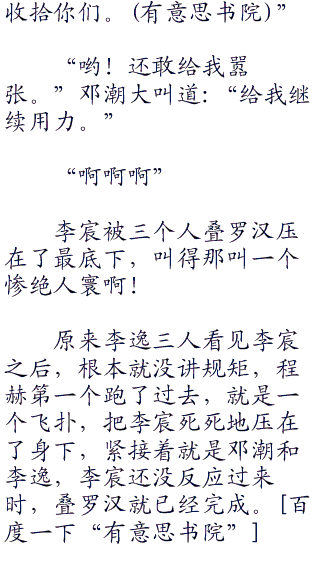 收拾你们。(有意思书院)”
“哟！还敢给我嚣
张。”邓潮大叫道：“给我继
续用力。”
“啊啊啊”
李宸被三个人叠罗汉压
在了最底下，叫得那叫一个
惨绝人寰啊！
原来李逸三人看见李宸
之后，根本就没讲规矩，程
赫第一个跑了过去，就是一
个飞扑，把李宸死死地压在
了身下，紧接着就是邓潮和
李逸，李宸还没反应过来
时，叠罗汉就已经完成。[百
度一下“有意思书院”]